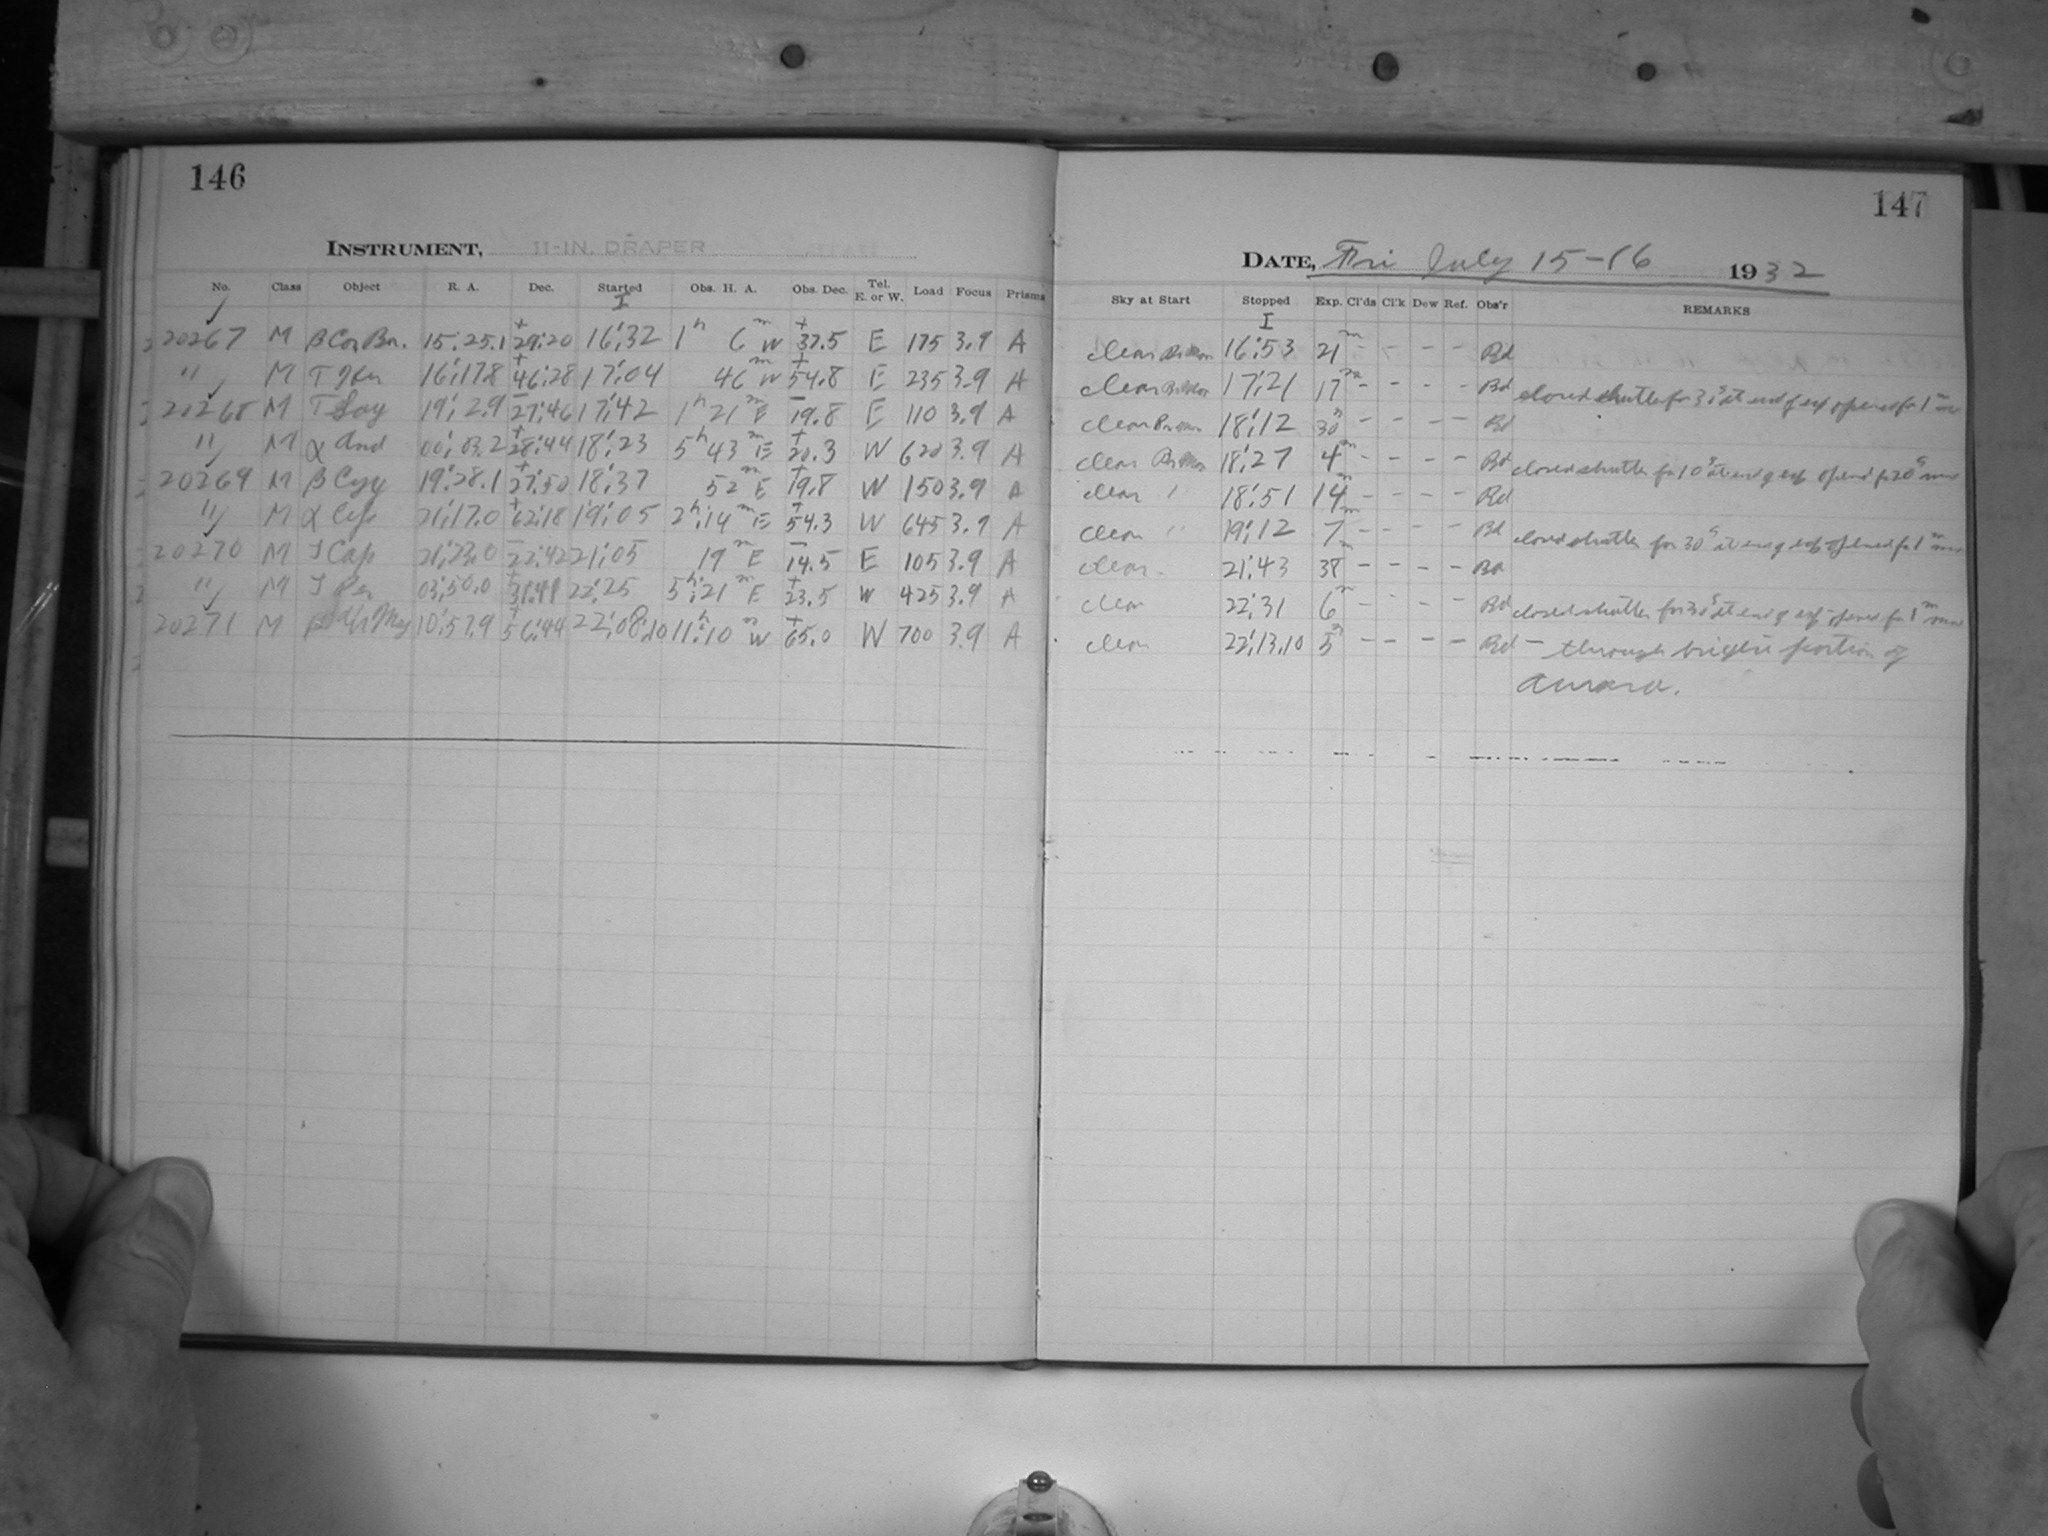 146
INSTRUMENT, 11-IN. DRAPER
No. Class Object R. A. Dec. Started Obs. H. A. Obs. Dec. Tel. E. or W. Load Focus Prisms
I
20267 M β Cor Bor. 15:25.1 +29:20 16:32 1h 6m W +37.5 E 175 3.9 A
" M τ Her 16:17.8 +46:28 17:04 46m W +54.8 E 235 3.9 A
20268 M 19:2.9 -27:46 17:42 1h 21m E -19.8 E 110 3.9 A
" M α And 00:03.2 +28:44 18:23 5h 43m E +20.3 W 620 3.9 A
20269 M β Cyg 19:28.1 +27:50 18:37 52m E +19.8 W 150 3.9 A
" M α Cep 21:17.0 +62:18 19:05 2h:14m E +54.3 W 645 3.9 A
20270 M Cap 21:23.0 -22:42 21:05 19m E -14.5 E 105 3.9 A
" M Per 03:50.0 22:25 5h:21m E +23.5 W 425 3.9 A
20271 M 10:57.9 +56:44 22:08:10 11h:10m W +65.0 W 700 3.9 A
147
DATE, Fri July 15-16 1932
Sky at Start Stopped Exp. Cl'ds Cl'k Dew Ref. Obs'r REMARKS
I
clear 16:53 21m Bd
clear 17:21 17m - - - - Bd closed shutter for 30s at end of exp opened for 1m more
clear 18:12 30m - - - - Bd
clear 18:27 4m - - - - Bd closed shutter for 10s at end of exp opened for 20s more
clear 18:51 14m - - - - Bd
clear " 19:12 7m - - - - Bd closed shutter for 30s at end of exp opened for 1m more
clear 21:43 38m - - - - Bd
clear 22:31 6m - - - - Bd closed shutter for 30s at end of exp opened for 1m more
clear 22:13.10 5m - - - - Bd - through bright portion of
aurora.